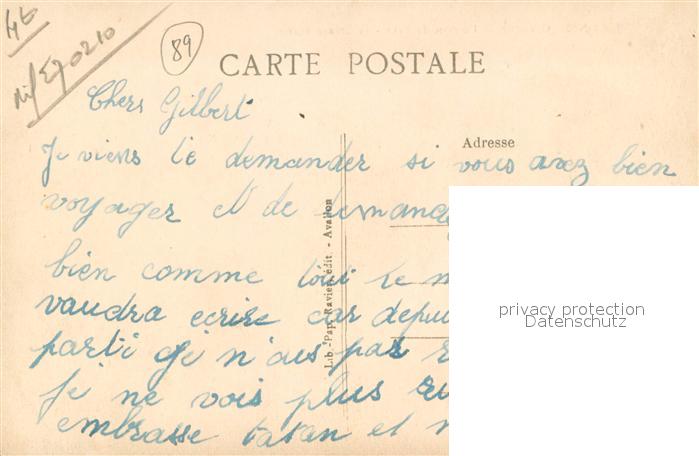 4€
89
CARTE POSTALE
Chers Gilbert
Adresse
Je viens te demander si vous avez bien
voyager et de
bien comme tout le m
vaudra ecrire car depui
parti je n'ais pas
je ne vois plus
embrasse tatan et
Lib.-Pap. Ravier, édit. - Avallon
privacy protection
Datenschutz